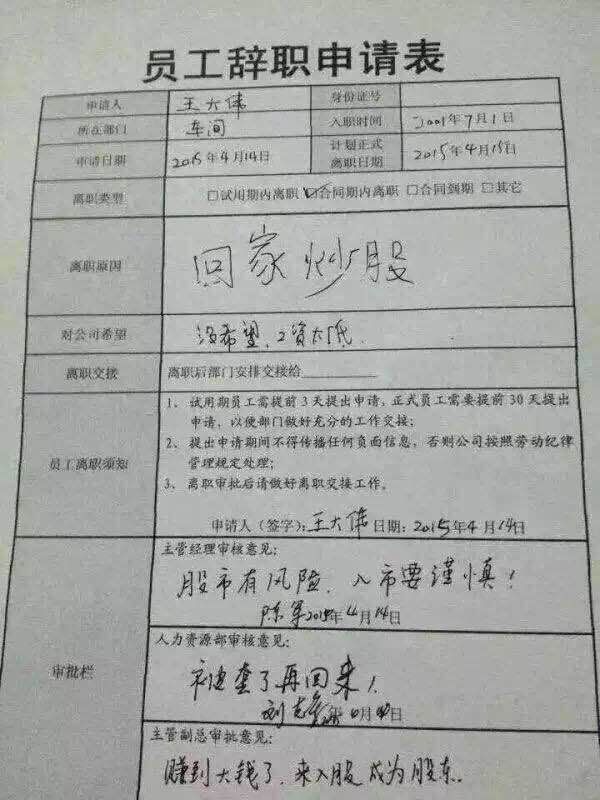 员工辞职申请表
申请人 王大伟 身份证号
所在部门 车间 入职时间 2001年7月1日
申请日期 2015年4月14日 计划正式离职日期 2015年4月15日
离职类型 □试用期内离职 ☑合同期内离职 □合同到期 □其它
离职原因 回家炒股
对公司希望 没希望,工资太低.
离职交接 离职后部门安排交接给________
员工离职须知
1、试用期员工需提前3天提出申请,正式员工需要提前30天提出
申请,以便部门做好充分的工作交接;
2、提出申请期间不得传播任何负面信息,否则公司按照劳动纪律
管理规定处理;
3、离职审批后请做好离职交接工作。
申请人(签字):王大伟 日期:2015年4月14日
审批栏
主管经理审核意见:
股市有风险、入市要谨慎!
陈军 2015年4月14日
人力资源部审核意见:
被套了再回来!
刘 年 月 日
主管副总审批意见:
赚到大钱了,来入股成为股东.